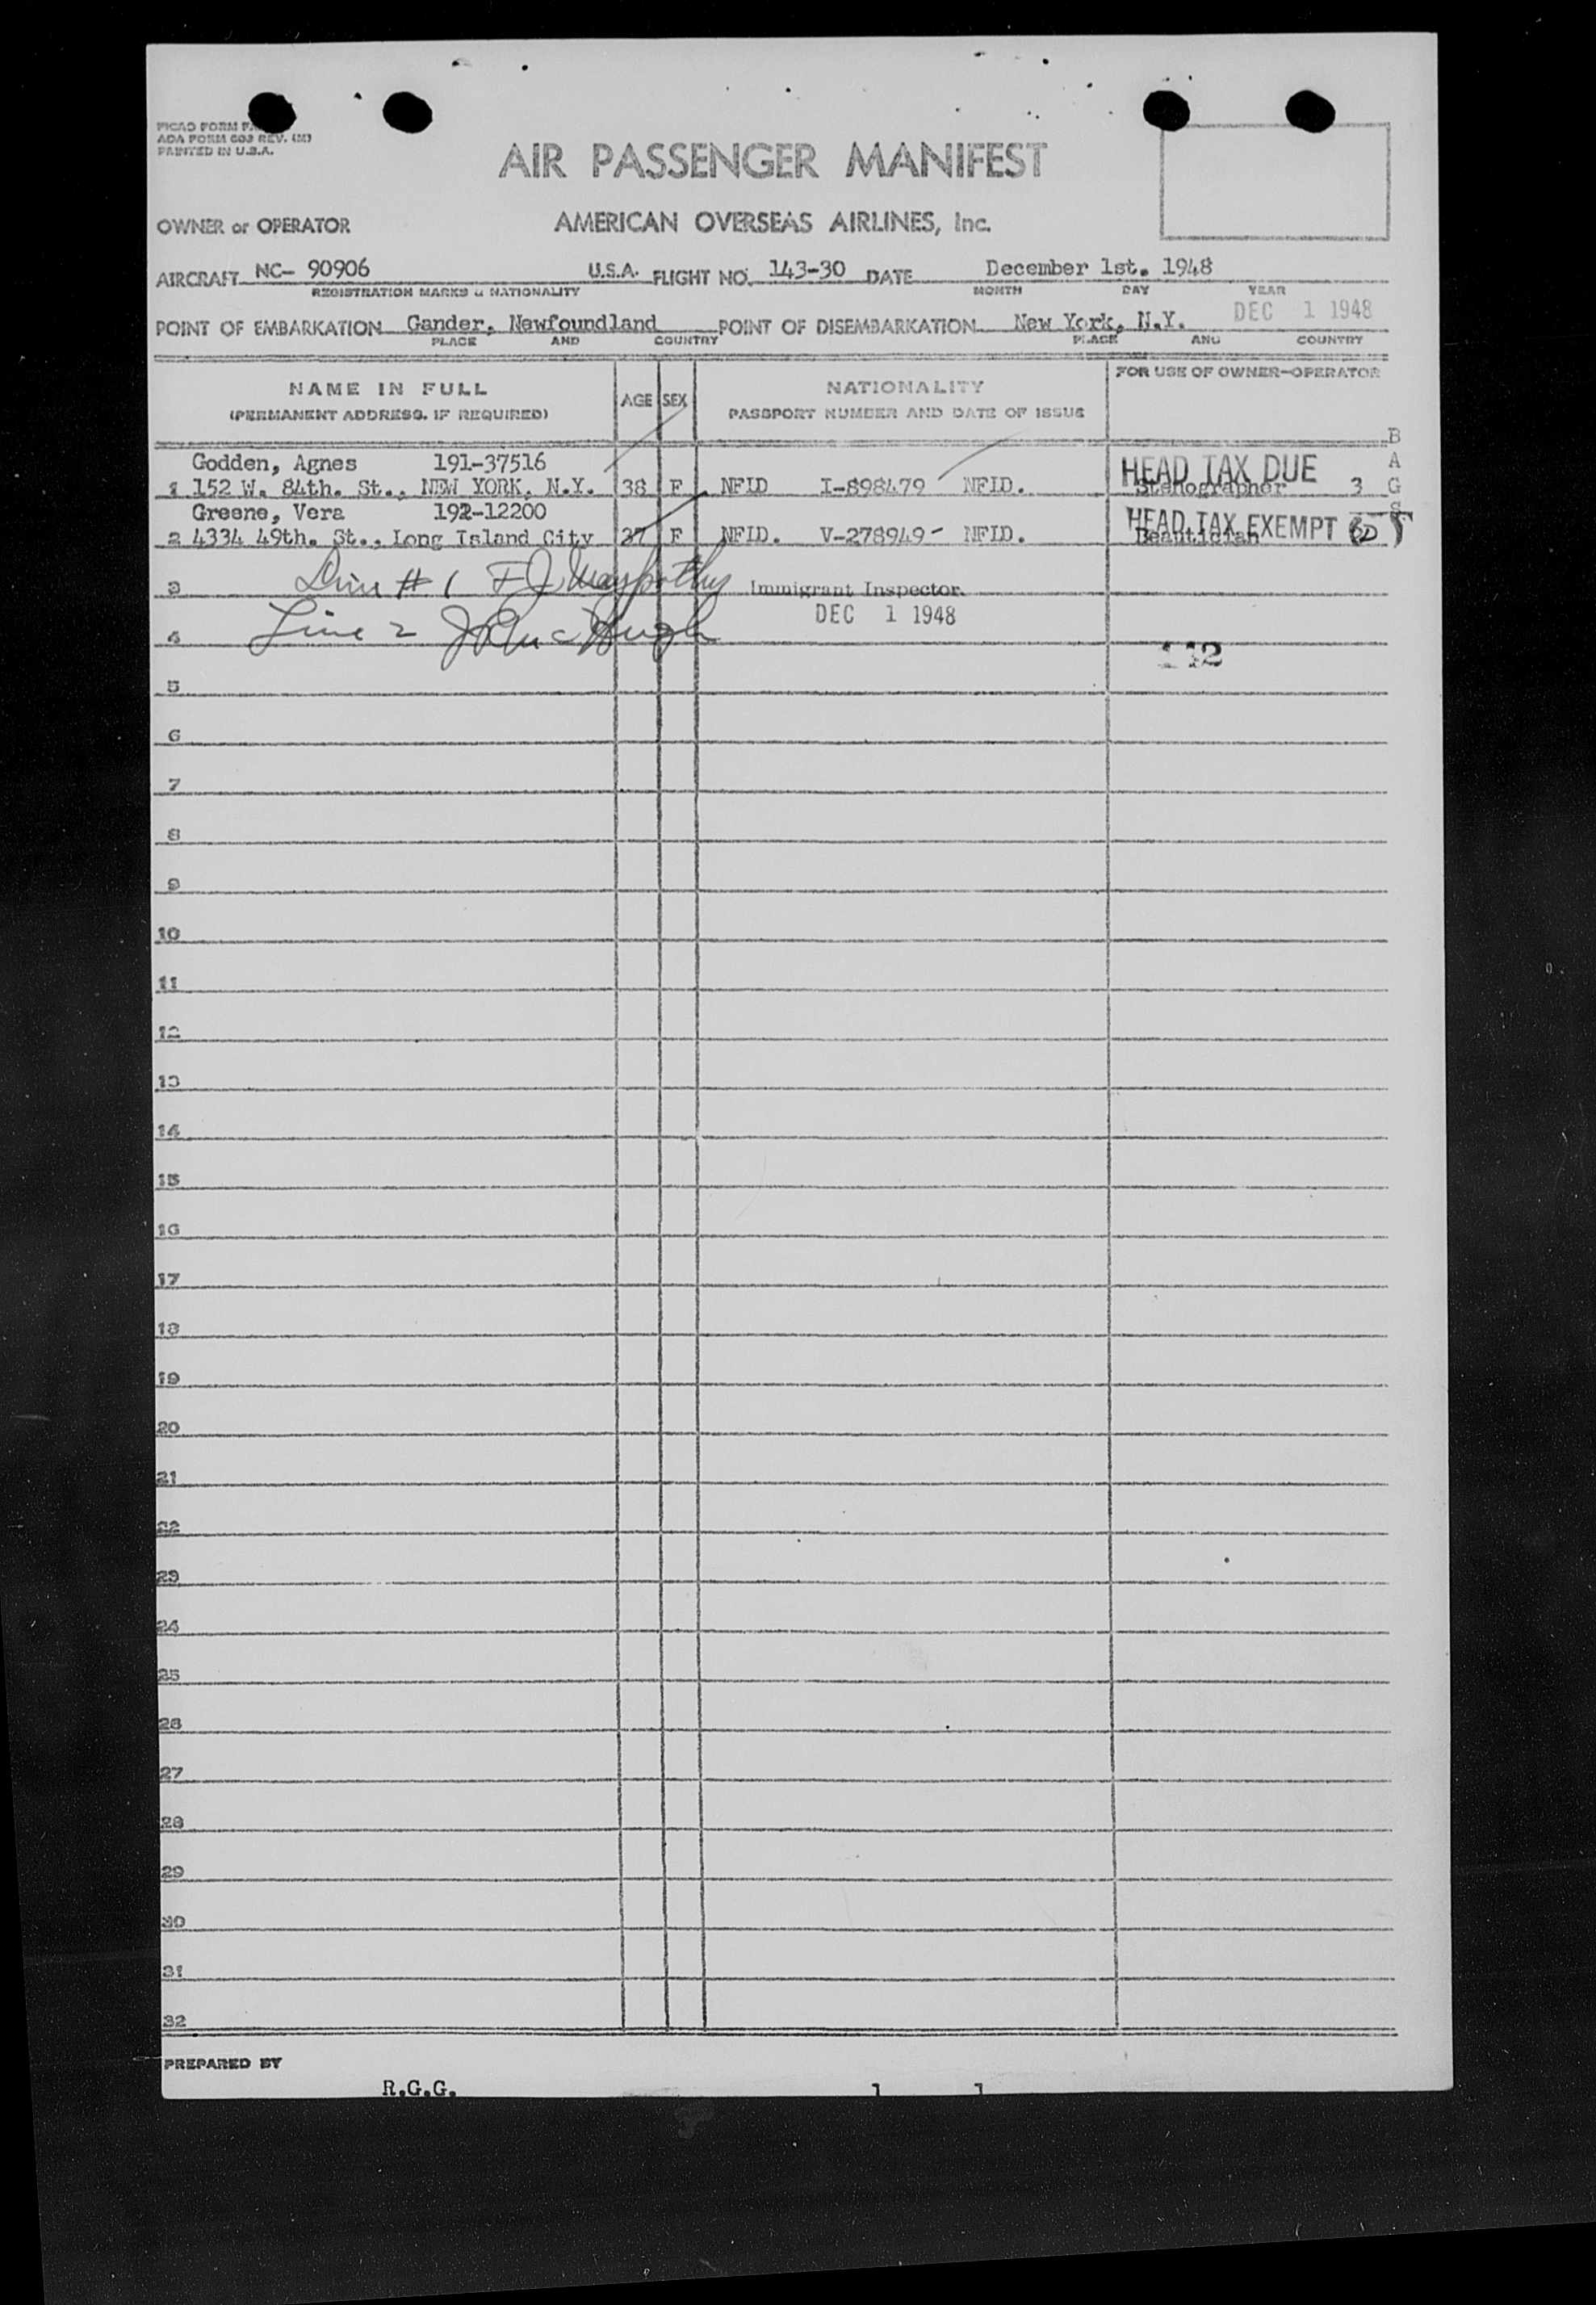 PICAO FORM
ADA FORM 603 REV. (M)
PRINTED IN U.S.A.
AIR PASSENGER MANIFEST
OWNER or OPERATOR AMERICAN OVERSEAS AIRLINES, Inc.
AIRCRAFT NC- 90906 U.S.A. FLIGHT NO. 143-30 DATE December 1st. 1948
REGISTRATION MARKS & NATIONALITY MONTH DAY YEAR
DEC 1 1948
POINT OF EMBARKATION Gander, Newfoundland POINT OF DISEMBARKATION New York, N.Y.
PLACE AND COUNTRY PLACE AND COUNTRY
NAME IN FULL AGE SEX NATIONALITY FOR USE OF OWNER-OPERATOR
(PERMANENT ADDRESS, IF REQUIRED) PASSPORT NUMBER AND DATE OF ISSUE
BAGS
Godden, Agnes 191-37516 HEAD TAX DUE
1 152 W. 84th. St., NEW YORK, N.Y. 38 F NFLD I-898479 NFLD. Stenographer 3
Greene, Vera 192-12200 HEAD TAX EXEMPT
2 4334 49th. St., Long Island City 27 F NFLD. V-278949- NFLD. Beautician
3 Line # 1 Immigrant Inspector.
DEC 1 1948
4 Line 2
5
6
7
8
9
10
11
12
13
14
15
16
17
18
19
20
21
22
23
24
25
26
27
28
29
30
31
32
PREPARED BY
R.G.G. 1 1